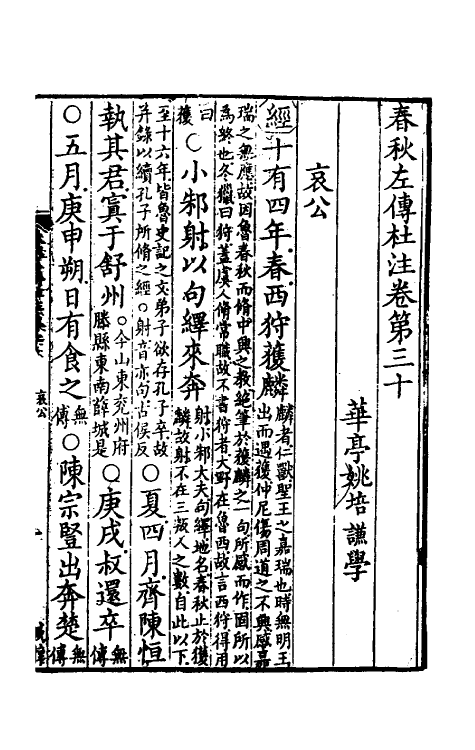 春秋左傳杜注卷第三十
華亭姚培謙學
哀公
經十有四年春西狩獲麟麟者仁獸聖王之嘉瑞也時無明王出而遇獲仲尼傷周道之不興感嘉
瑞之無應故因魯春秋而脩中興之教絕筆於獲麟之一句所感而作固所以爲終也冬獵曰狩蓋虞人脩常職故不書狩者大野在魯西故言西狩得用
曰獲○小邾射以句繹來奔射小邾大夫句繹地名春秋止於獲麟故射不在三叛人之數自此以下
至十六年皆魯史記之文弟子欲存孔子卒故并錄以續孔子所脩之經○射音亦句古侯反○夏四月齊陳恒
執其君寘于舒州○今山東兗州府滕縣東南薛城是○庚戌叔還卒無傳
○五月庚申朔日有食之無傳○陳宗豎出奔楚無傳
哀公
一